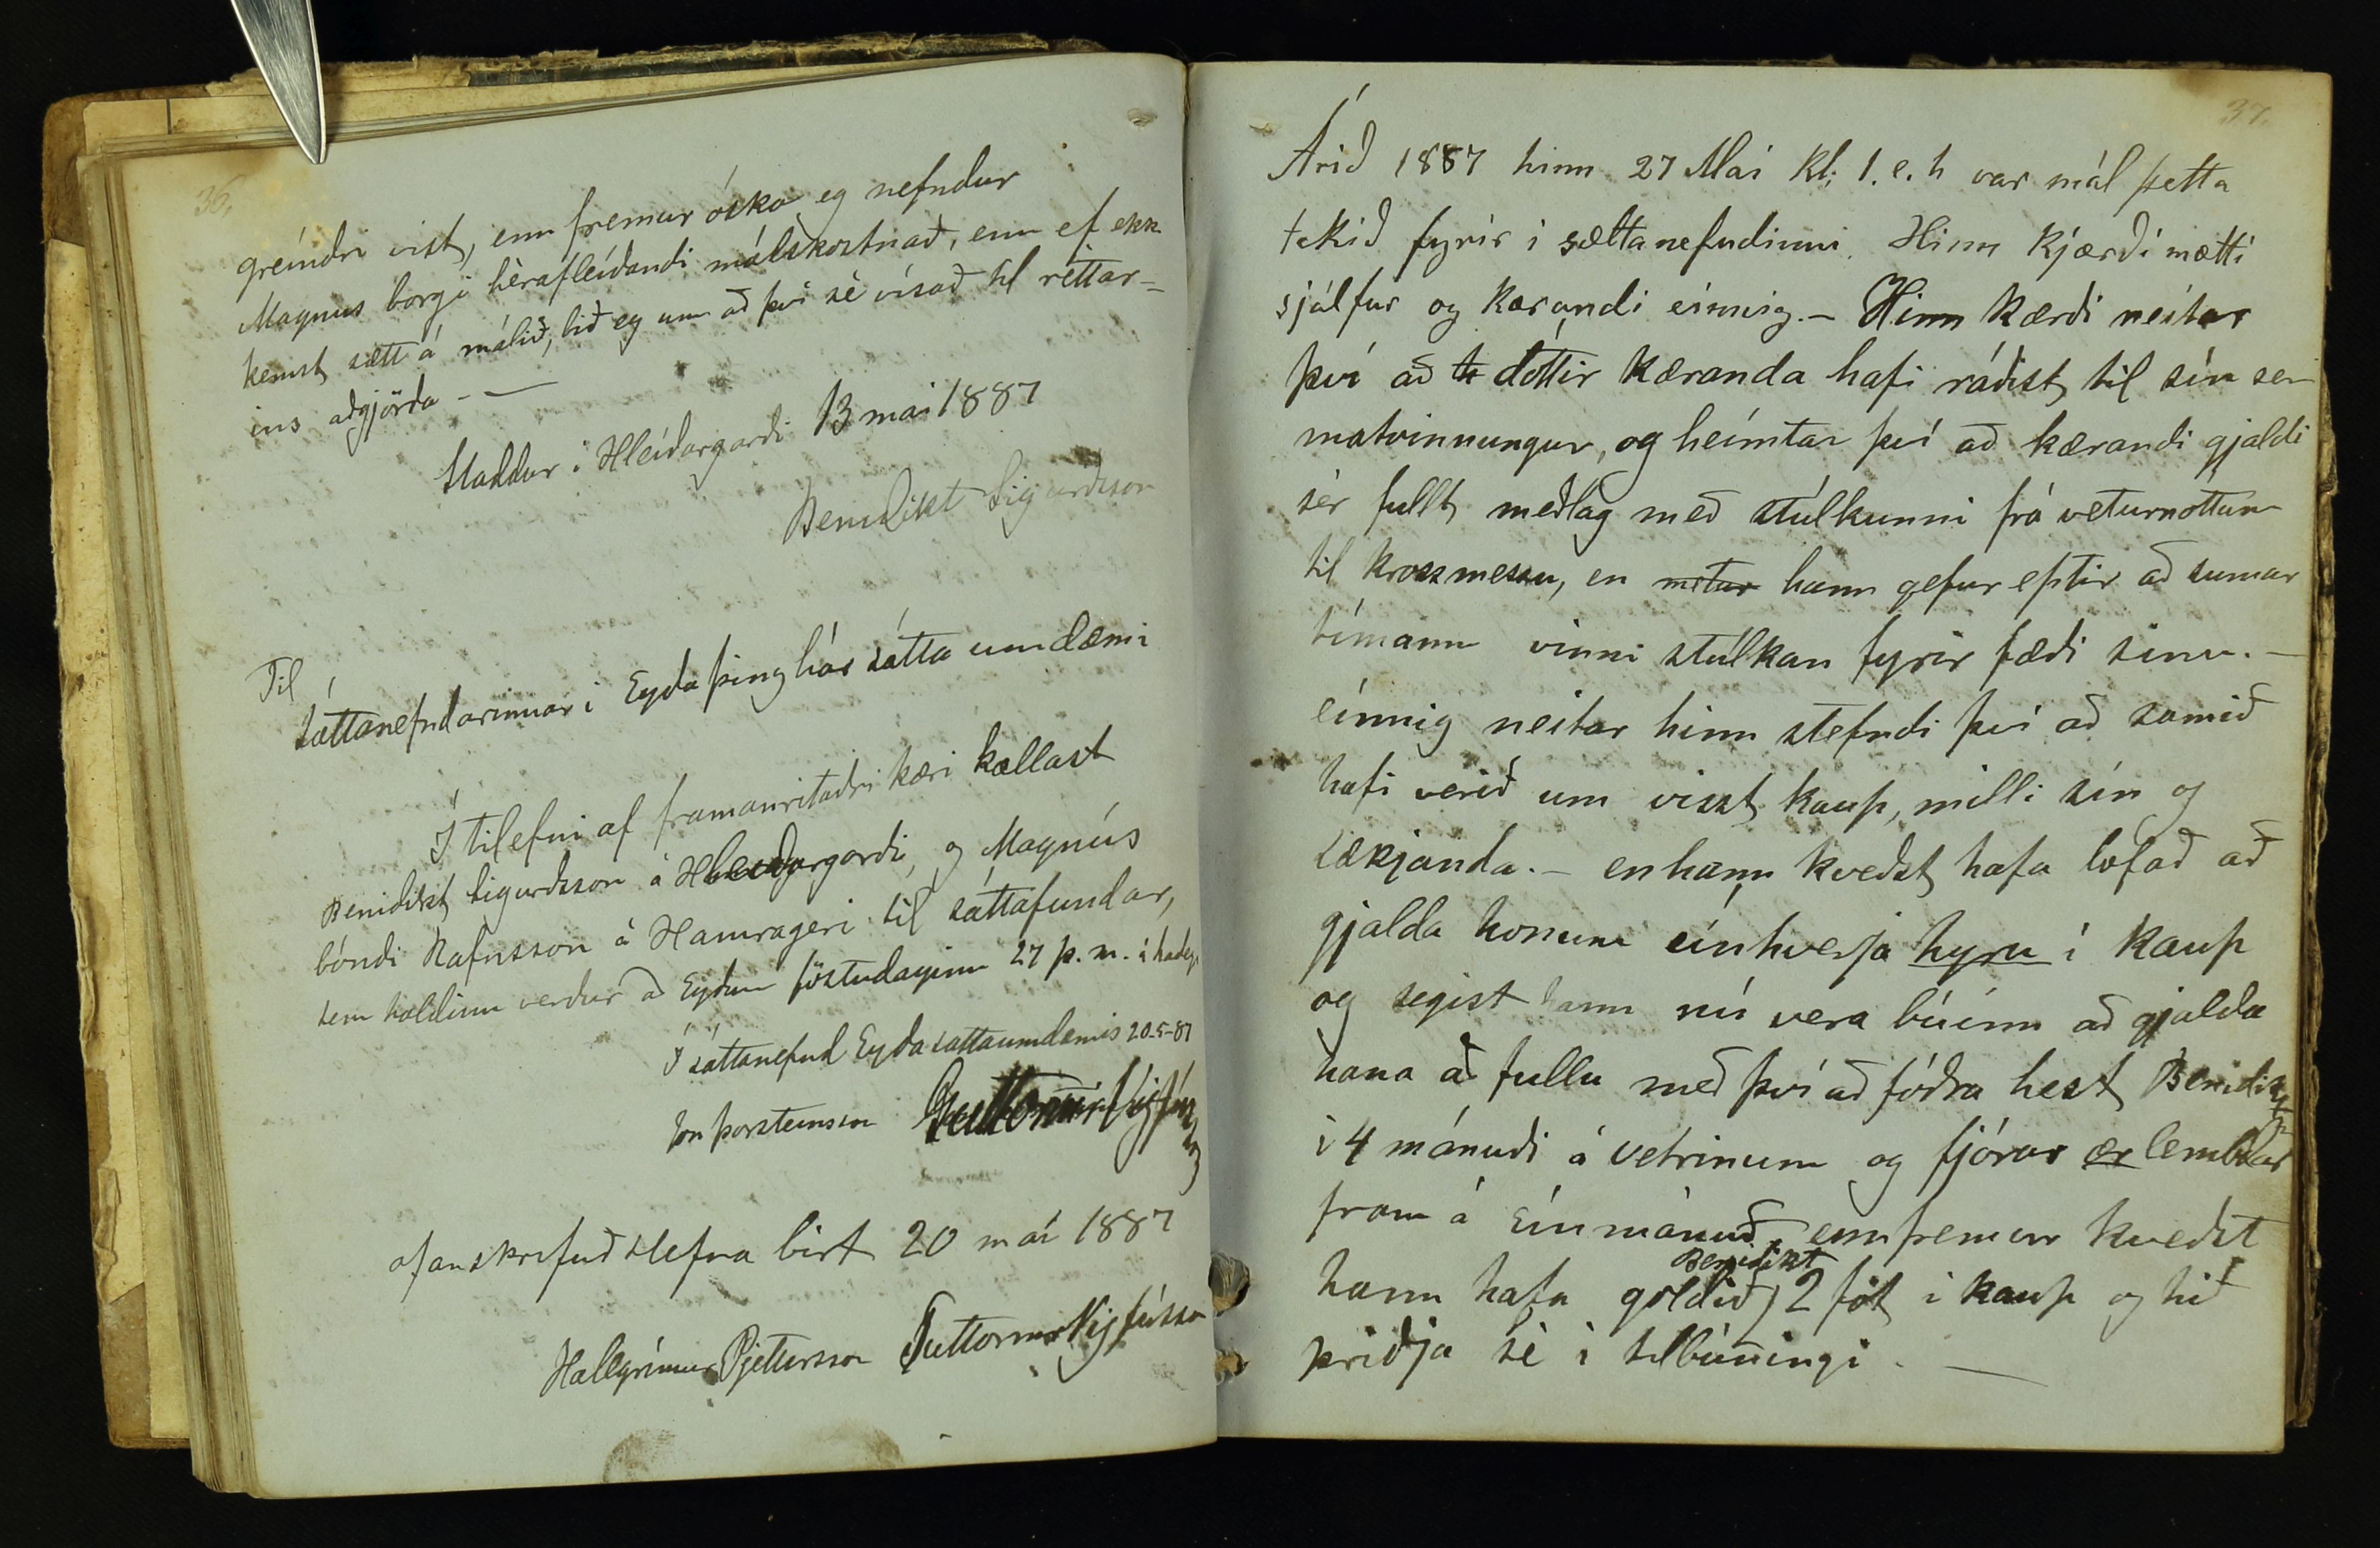 36.
greindri vist, enn fremur óska eg nefndur
Magnus borgi hérafleiðandi málskostnað, enn ef ekk
kemst sætt á málið, bið eg um að því sé vísað til réttar-
ins aðgjörða - —
Staddur i Hleiðargarði 13 mai 1887
Benidikt Sigurdsson
Til
Sáttanefndarinnar i Eyða þinghár sátta umdæmi
Í tilefni af framanritaðri kæri kallast
Benidikt Sigurðsson á Hleiðargarði, og Magnús
bóndi Rafnsson á Hamrageri til sáttafundar,
sem haldinn verður að Eyðum föstudaginn 27 þ. m. á hadeg
Í sáttanefnd Eyða sattaumdæmis 20-5-87
Jón Þorsteinsson Guttormur Vigfússon
ofanskrifuð stefna birt 20 mai 1887
Hallgrímur Pjettursson Guttormur Vigfússo
37.
Árið 1887 hinn 27 Mai kl. 1. e. h var mál þetta
tekið fyrir i sættanefndinni. Hinn kjærði mætti
sjálfur og kærandi einnig. - Hinn kærði neitar
því að dóttir kæranda hafi ráðist til sín sem
matvinnungur, og heimtar því að kærandi gjaldi
sér fullt meðlag með stúlkunni frá veturnottum
til krossmessu, en hann gefur eptir að sumar
tímann vinni stúlkan fyrir fæði sinu. -
einnig neitar hinn stefndi því að samið
hafi verið um visst kaup, milli sín og
sækjanda. - en hann kveðst hafa lofað að
gjalda honum einhverja hyru i kaup
og segist hann nú vera búinn að gjalda
hana að fullu með því að fóðra hest Benidikts
i 4 mánuði á vetrinum og fjórar ær lembdar
fram á Einmánuð, ennfremur kveðst
hann hafa goldið Benidikt 2 föt i kaup og hið
þriðja sé i tilbúningi. —